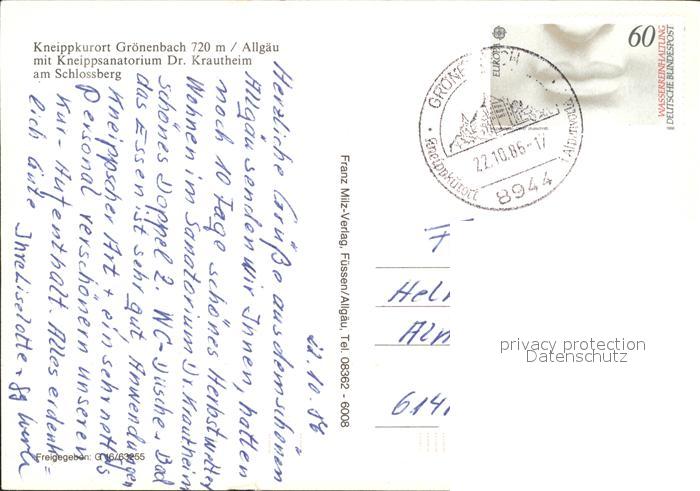 Kneippkurort Grönenbach 720 m / Allgäu
mit Kneippsanatorium Dr. Krautheim
am Schlossberg
22.10.86
Herzliche Grüße aus dem schönen
Allgäu senden wir Ihnen, hatten
noch 10 Tage schönes Herbstwetter
Wohnen im Sanatorium Dr. Krautheim
schönes Doppel Z. WC-Dusche + Bad
das Essen ist sehr gut Anwendungen
Kneippscher Art + ein sehr nettes
Personal verschönern unseren
Kur-Aufenthalt. Alles erdenk=
lich Gute Ihre Liselotte +
Franz Milz-Verlag, Füssen/Allgäu, Tel. 08362 - 6008
Freigegeben: G 16/63255
EUROPA
60
WASSERREINHALTUNG
DEUTSCHE BUNDESPOST
GRÖNENBACH
Kneippkurort
22.10.86-17
8944
F
Hel
Alm
614
privacy protection
Datenschutz